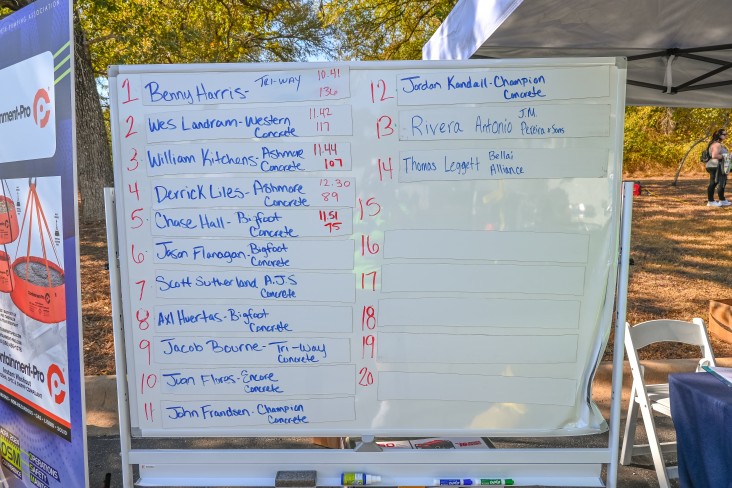 1 Benny Harris- TRI-WAY 10.41
136
2 Wes Landrum-Western 11.42
Concrete 117
3. William Kitchens-Ashmore 11.44
Concrete 107
4 Derrick Liles-Ashmore 12.30
Concrete 89
5. Chase Hall-Bigfoot 11.51
Concrete 75
6. Jason Flanagan-Bigfoot
Concrete
7 Scott Sutherland A.J.S
Concrete
8 Axl Huertas-Bigfoot
Concrete
9 Jacob Bourne-Tri-Way
Concrete
10 Juan Flores-Encore
Concrete
11 John Frandsen-Champion
Concrete
12 Jordan Kendall-Champion
Concrete
13. Rivera Antonio J.M.
Pereira & Sons
14 Thomas Leggett Bella's
Alliance
15
16
17
18
19
20
PUMPING ASSOCIATION
inment-Pro
ontainment-Pro
OPERATIONS
SAFETY